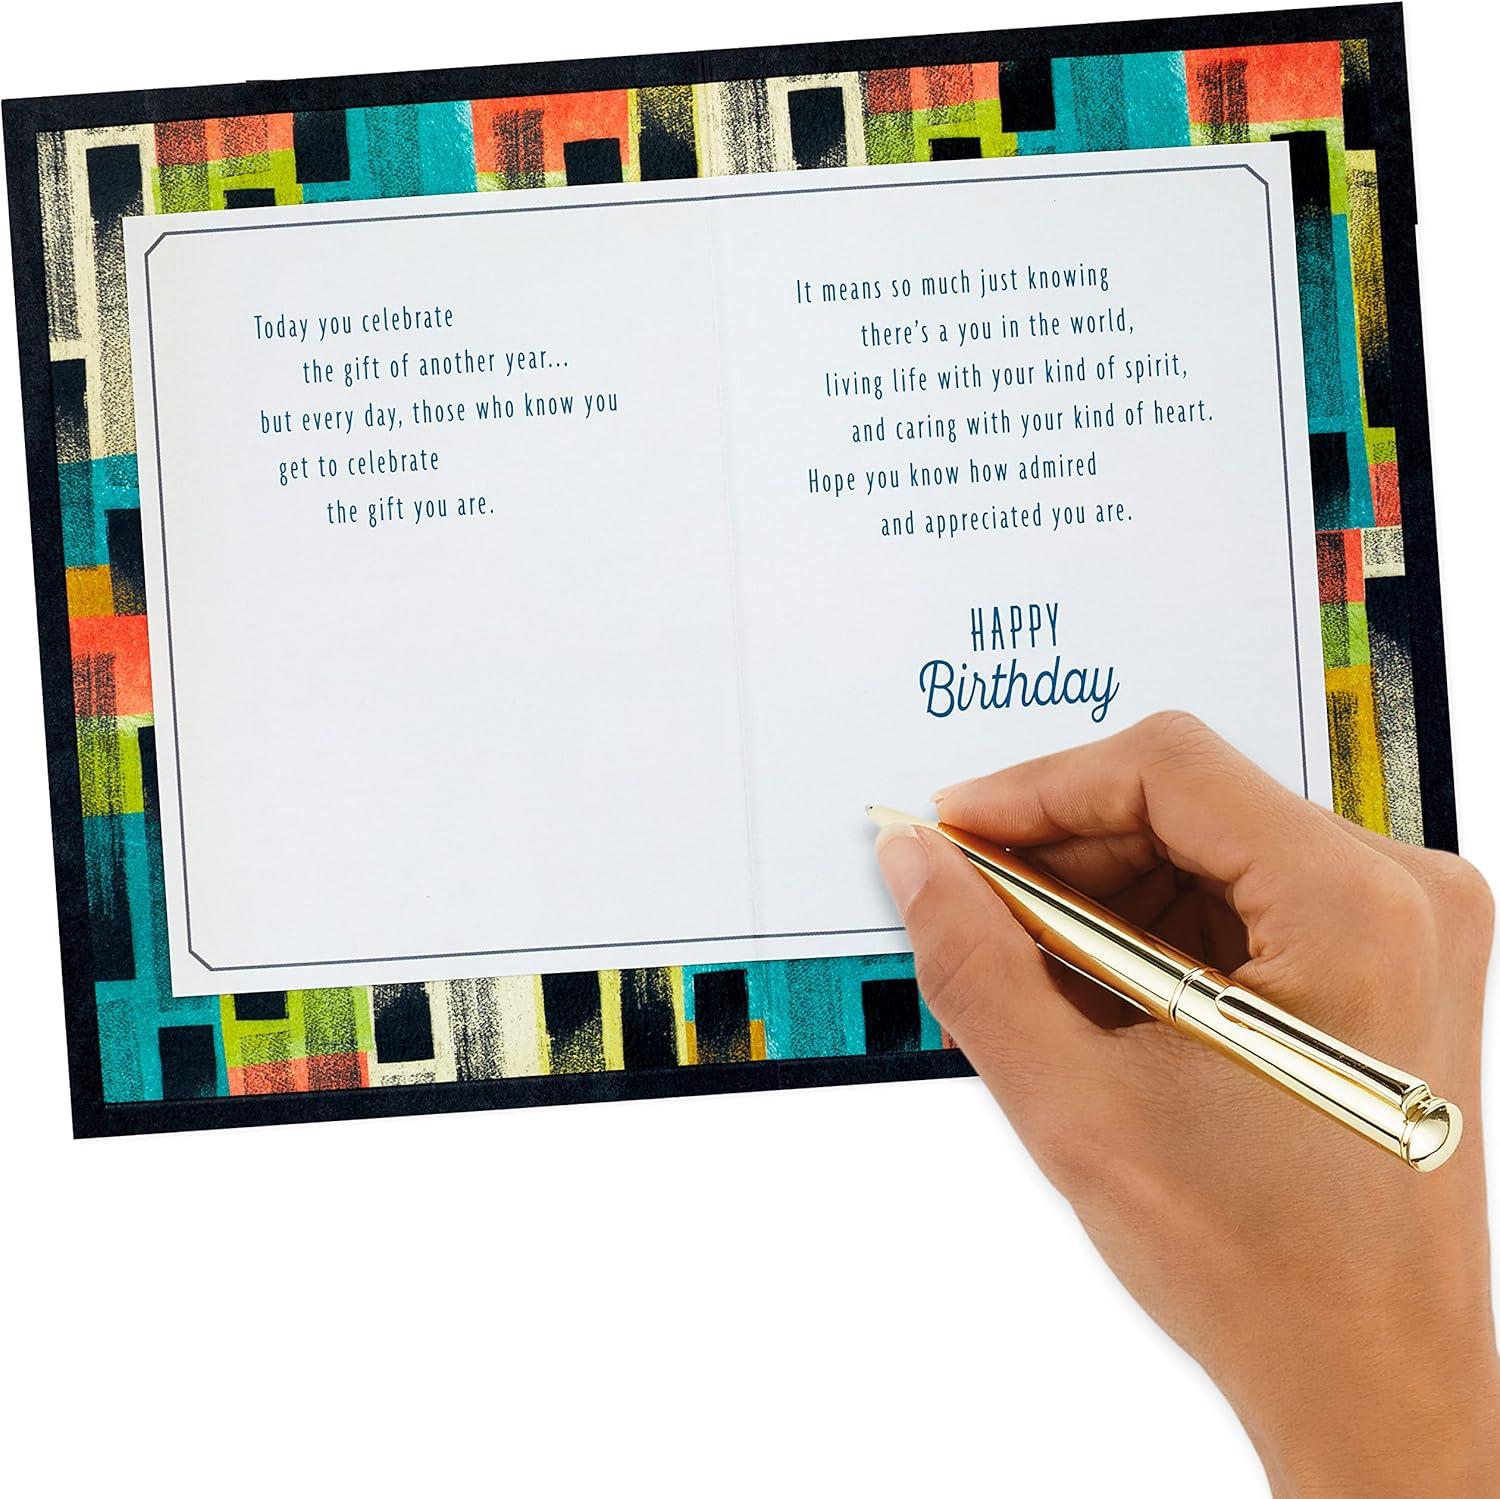 Today you celebrate
the gift of another year...
but every day, those who know you
get to celebrate
the gift you are.
It means so much just knowing
there's a you in the world,
living life with your kind of spirit,
and caring with your kind of heart.
Hope you know how admired
and appreciated you are.
HAPPY
Birthday